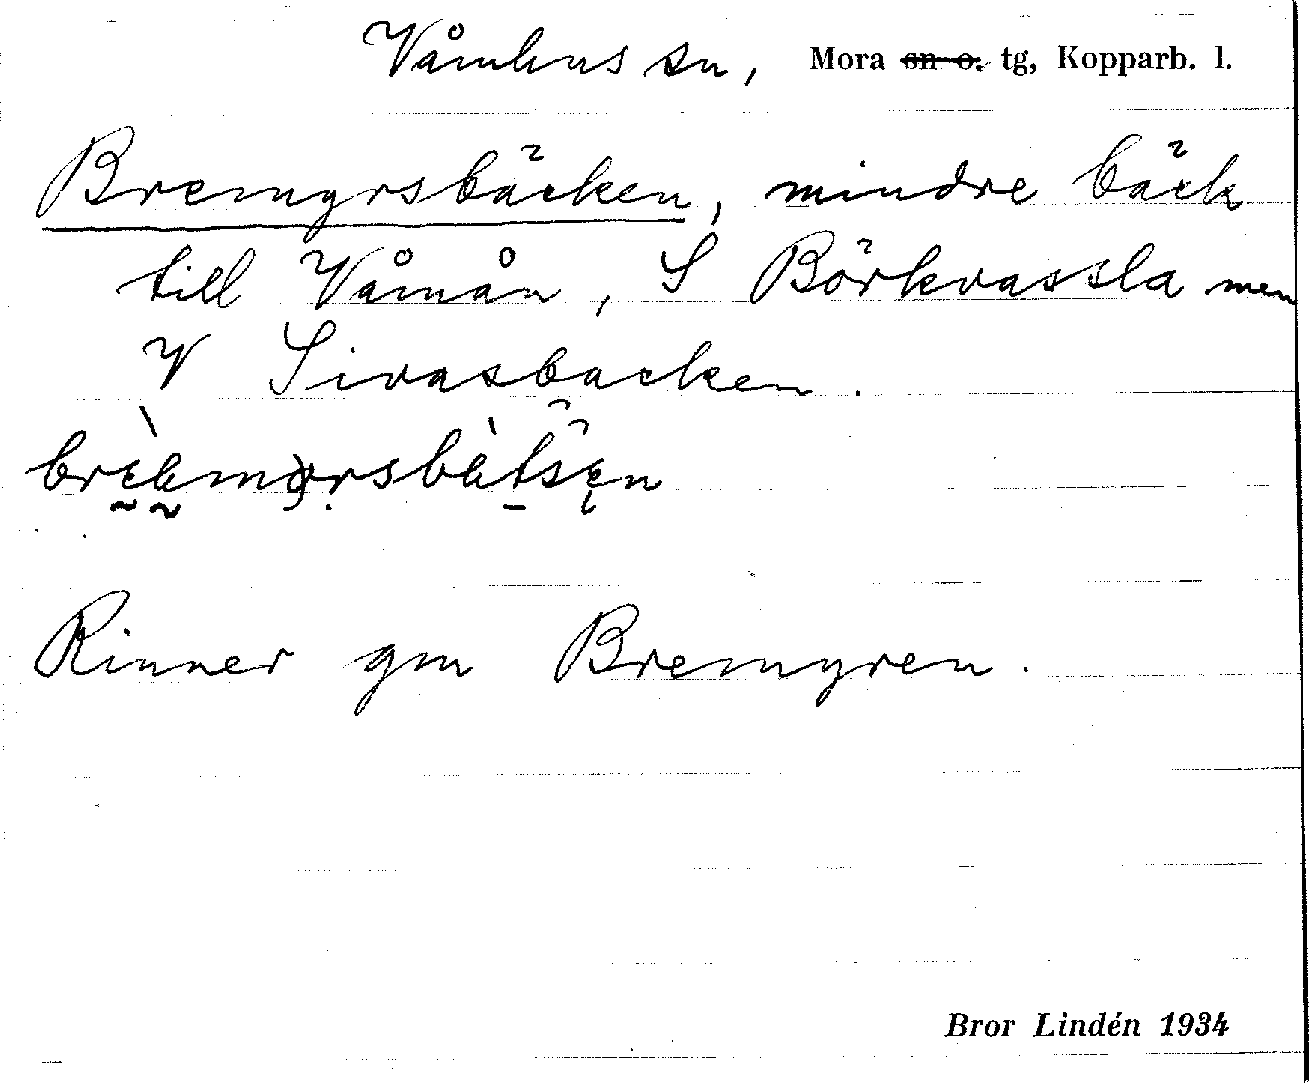 Våmhus sn, Mora sn o. tg, Kopparb. l.
Bremyrsbäcken, mindre bäck
till Våmån, S Börkvassla men
V Sivasbacken.
Rinner gm Bremyren.
Bror Lindén 1934